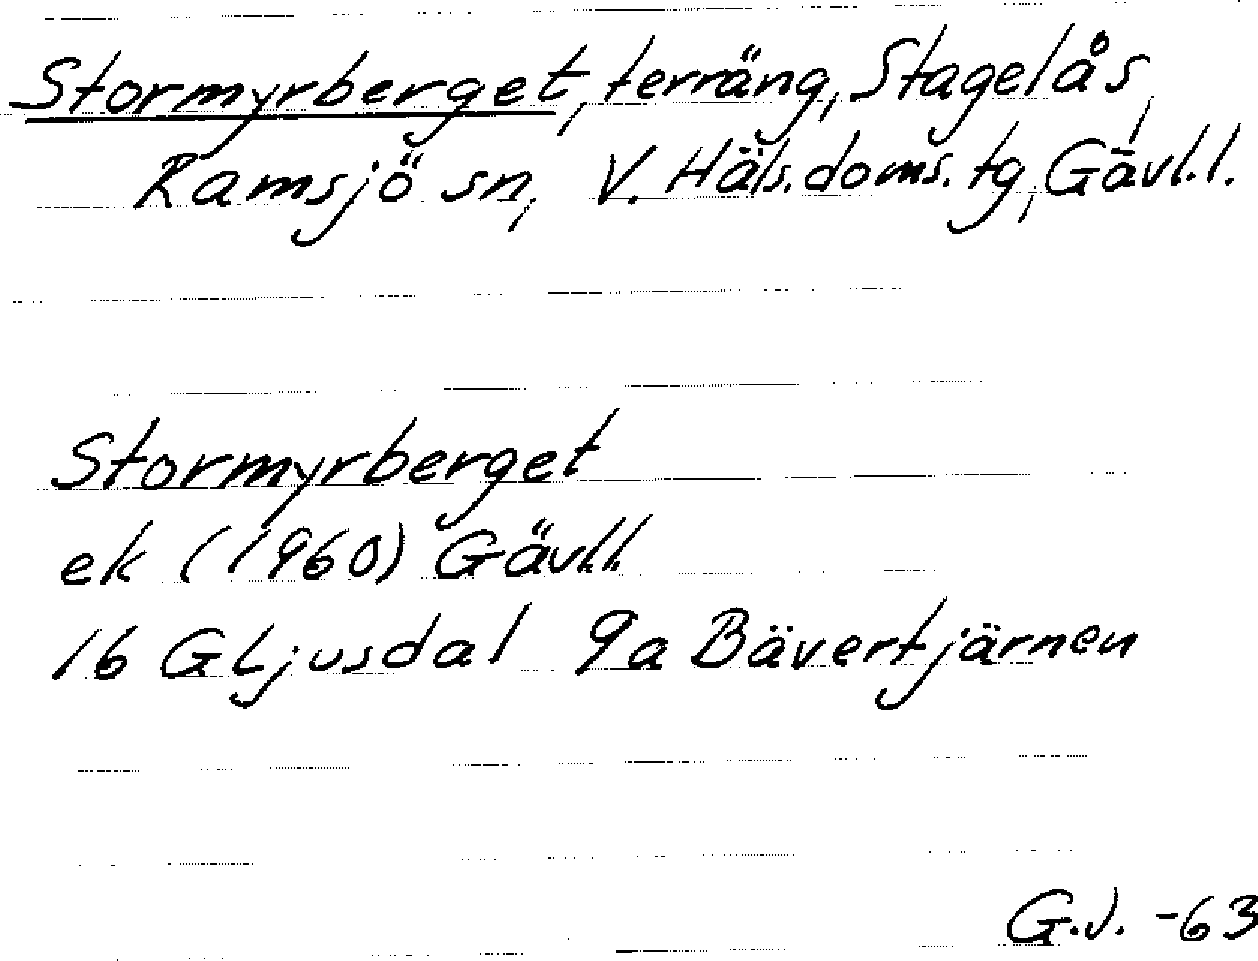 Stormyrberget, terräng, Stagelås,
Ramsjö sn, V. Häls. doms. tg, Gävl. l.
Stormyrberget
ek (1960) Gävl.l.
16 G Ljusdal 9a Bävertjärnen
G.J. -63